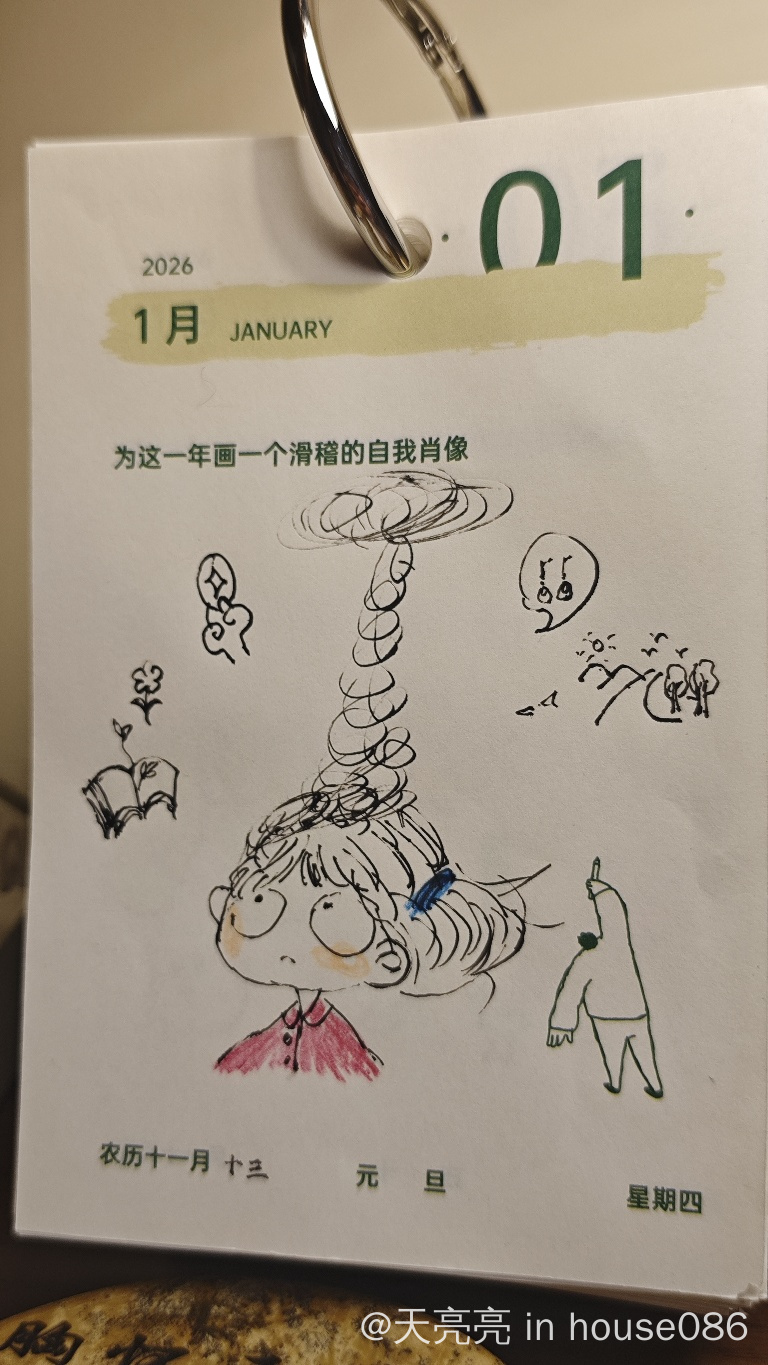 01
2026
1月 JANUARY
为这一年画一个滑稽的自我肖像
农历十一月 十三
元旦
星期四
@天亮亮 in house086